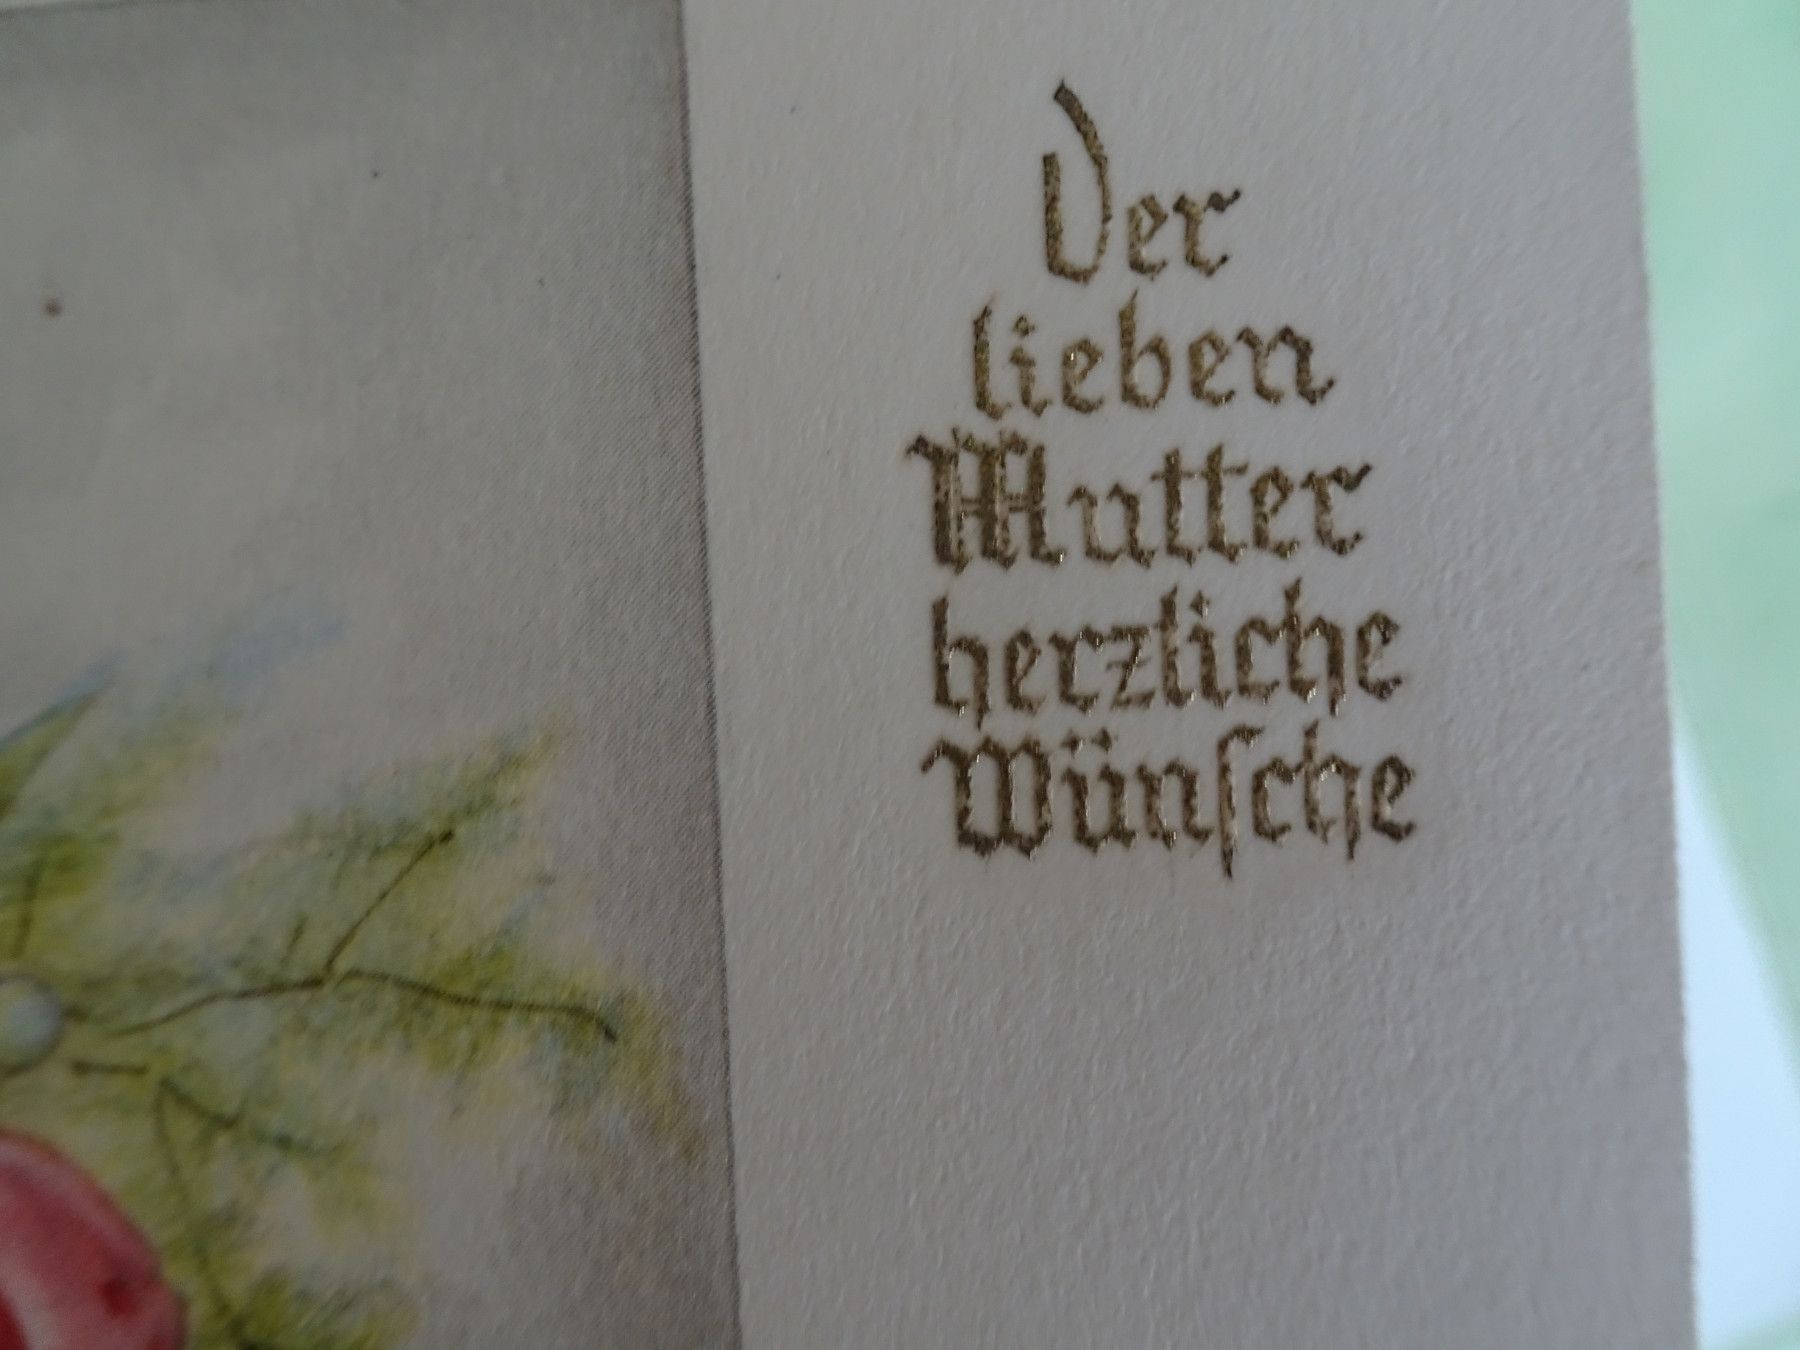 Der
lieben
Mutter
herzliche
Wünſche